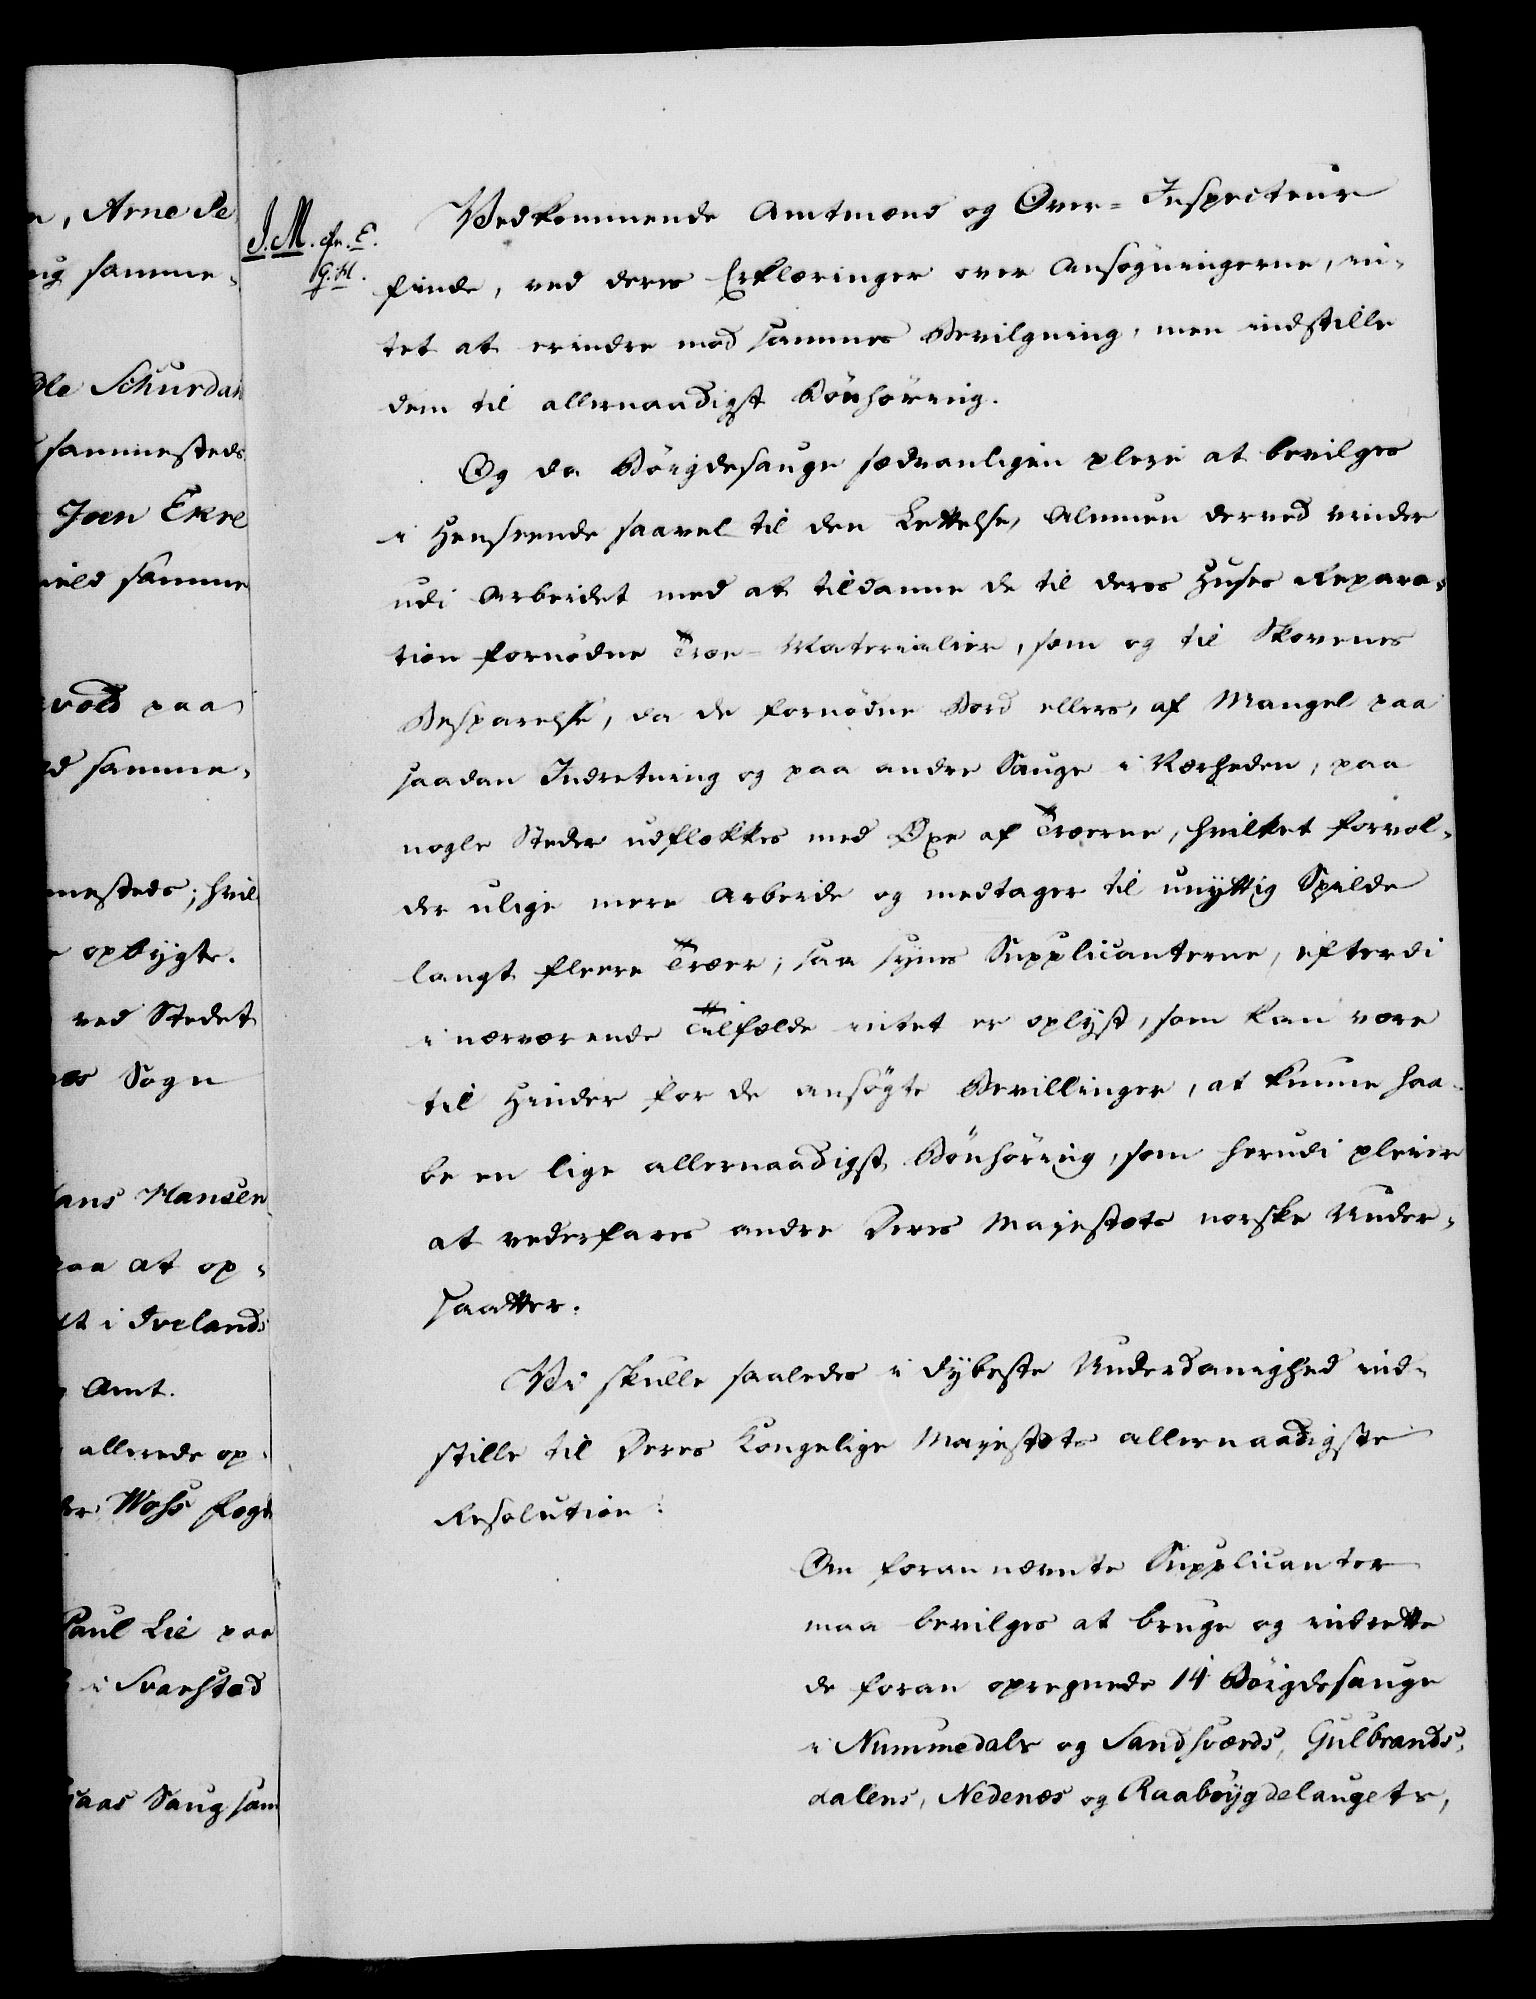 n, Arne Pe
ug samme-
Ole Schurdah
sammesteds.
Joen Ekre
ield samme
vold paa
ed samme-
mesteds; hvil
opbygte.
ved Stedet
Sogn
Hans Hansen
paa at op-
i Ivelands
Amt.
allerede op-
Woss fogd
Paul Lie paa
i Svarstad
Saug sam
J. M. cfr. E.
G. H.
Vedkommende Amtmænd og Over-Inspecteur
finde, ved deres Erklæringer over Ansøgningerne, in-
tet at erindre mod sammes Bevilgning, men indstille
dem til allernaadigst Bönhörring.
Og da Böigdesauge sædvanligen pleie at bevilges
i Henseende saavel til den Lettelse, Almuen derved vinder
udi Arbeidet med at tildanne de til deres Huses Repara-
tion fornødne Træ-Materialier, som og til Skovenes
Besparelse, da de fornödne Bord ellers, af Mangel paa
saadan Indretning og paa andre Sauge i Nærheden, paa
nogle Steder udflekkes med Øxe af Træerne, hvilket forvol-
der ulige mere Arbeide og medtager til unyttig Spilde
langt fleere Træer; saa synes Supplicanterne, efterdi
i nærværende Tilfælde intet er oplyst, som kan være
til Hinder for de ansögte Bevillinger, at kunne haa-
be en lige allernaadigst Bönhöring, som herudi pleier
at vederfares andre Deres Majestæts norske Under-
saatter.
Vi skulle saaledes i dybeste Underdanighed ind-
stille til Deres Kongelige Majestæts allernaadigste
Resolution:
Om forannævnte Supplicanter
maa bevilges at bruge og indrette
de foran opregnede 14 Böigdesauge
i Nummedals og Sandsværds, Gulbrands-
dalens, Nedenæs og Raabøygdelaugets,